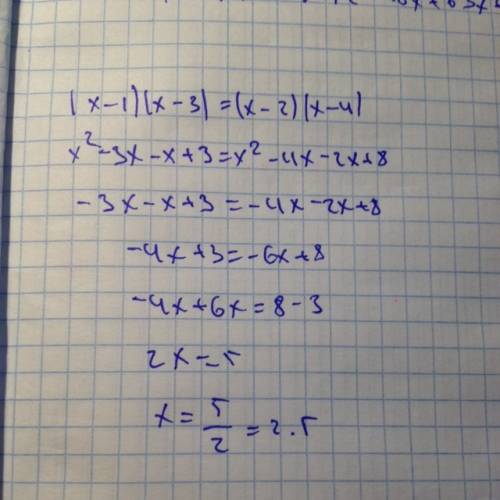 (x-1)(x-3)=(x-2)(x-4)
x²-3x-x+3=x²-4x-2x+8
-3x-x+3=-4x-2x+8
-4x+3=-6x+8
-4x+6x=8-3
2x=5
x=5/2=2.5